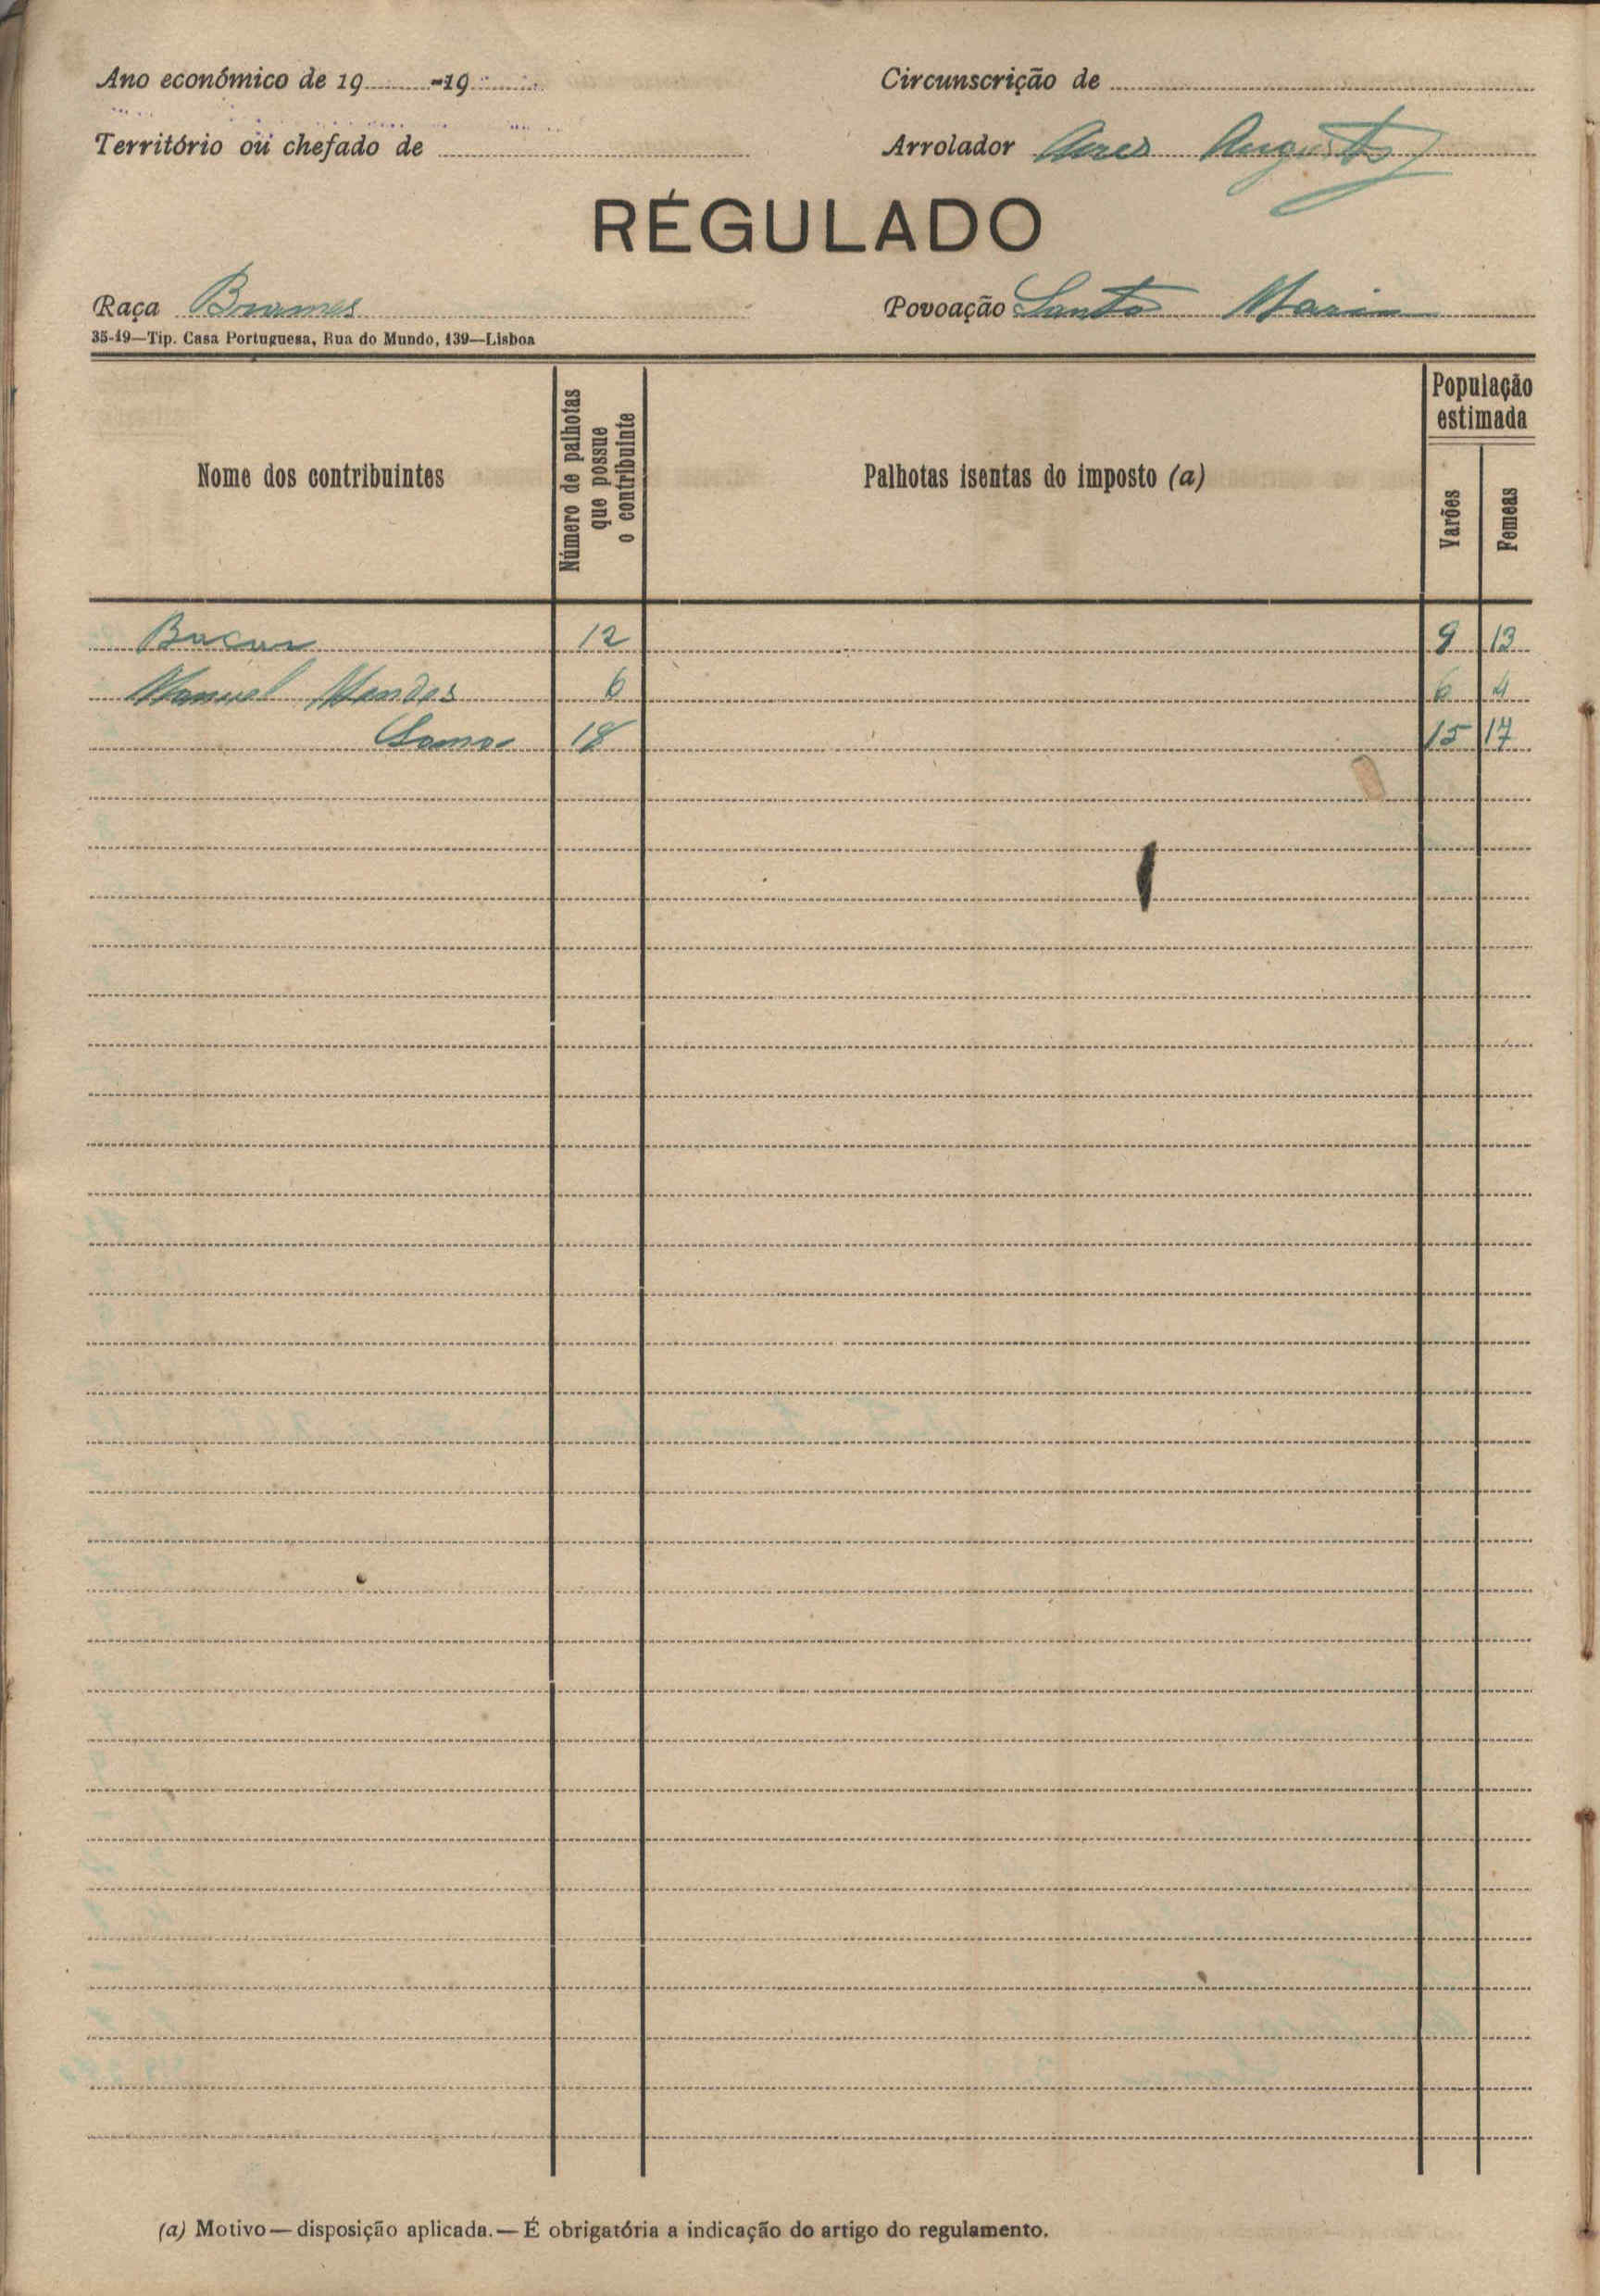 Ano económico de 19 -19
Circunscrição de
Território ou chefado de
Arrolador Aires Augusto
RÉGULADO
Raça Brames
Povoação Santa Maria
35-19—Tip. Casa Portuguesa, Rua do Mundo, 139—Lisboa
Nome dos contribuintes
Número de palhotas que possue o contribuinte
Palhotas isentas do imposto (a)
População estimada
Varões
Femeas
Bacar 12 9 13
Manuel Mendes 6 6 4
Soma 18 15 17
(a) Motivo—disposição aplicada.—É obrigatória a indicação do artigo do regulamento.